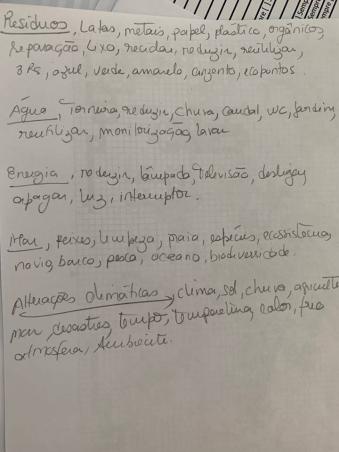 Resíduos, Latas, metais, papel, plástico, orgânicos
reparação, Lixo, reciclar, reduzir, reutilizar,
3 Rs, azul, verde, amarelo, cinzento, ecopontos.
Água, Torneira, reduzir, chuva, caudal, wc, jardim,
reutilizar, monitorização, lavar
Energia, reduzir, lâmpada, televisão, desligar
apagar, luz, interruptor.
Mar, peixes, limpeza, praia, espécies, ecossistema,
navio, barco, pesca, oceano, biodiversidade.
Alterações climáticas, clima, sol, chuva,
mar, desastres, tempo, temperatura, calor, frio
atmosfera, Ambiente.